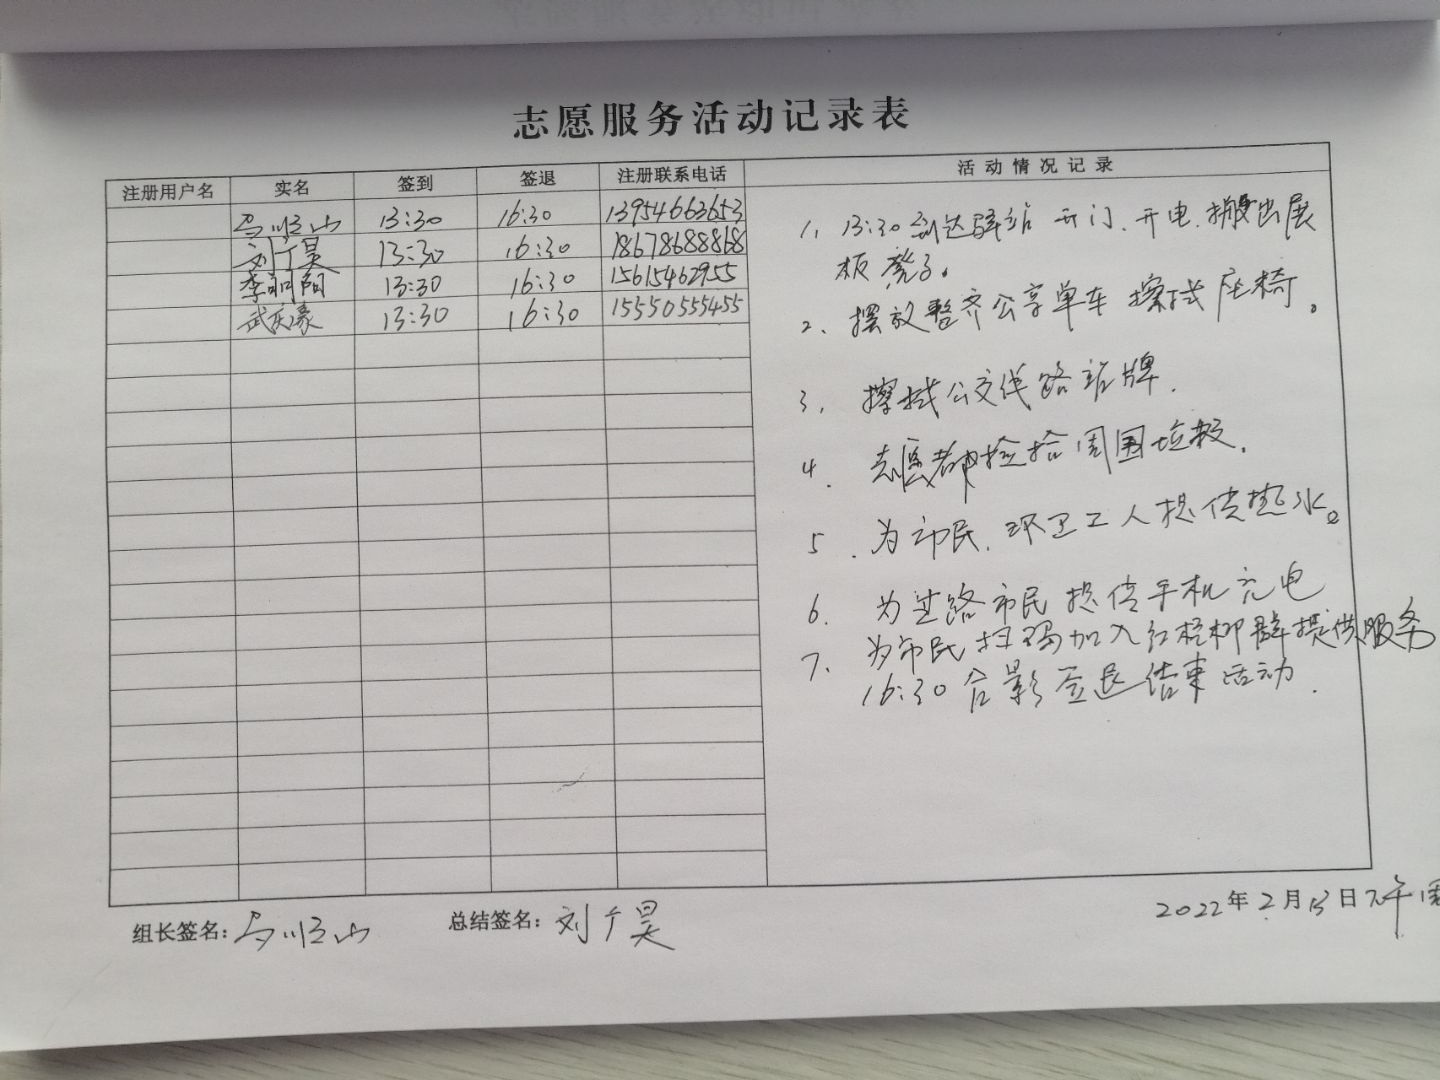 志愿服务活动记录表
注册用户名 实名 签到 签退 注册联系电话 活动情况记录
马顺山 13:30 16:30 13954663653
刘广昊 13:30 16:30 18678688868
李向阳 13:30 16:30 15615462955
武庆豪 13:30 16:30 15550555455
1、13:30到达驿站 开门、开电、搬出展
板 凳子。
2、摆放整齐公享单车 擦拭座椅。
3、擦拭公交线路站牌.
4. 志愿者捡拾周围垃圾.
5. 为市民、环卫工人提供热水。
6. 为过路市民提供手机充电
7. 为市民扫码加入红柽柳群提供服务
16:30 合影签退结束活动.
组长签名: 马顺山 总结签名: 刘广昊 2022年2月13日下午 周